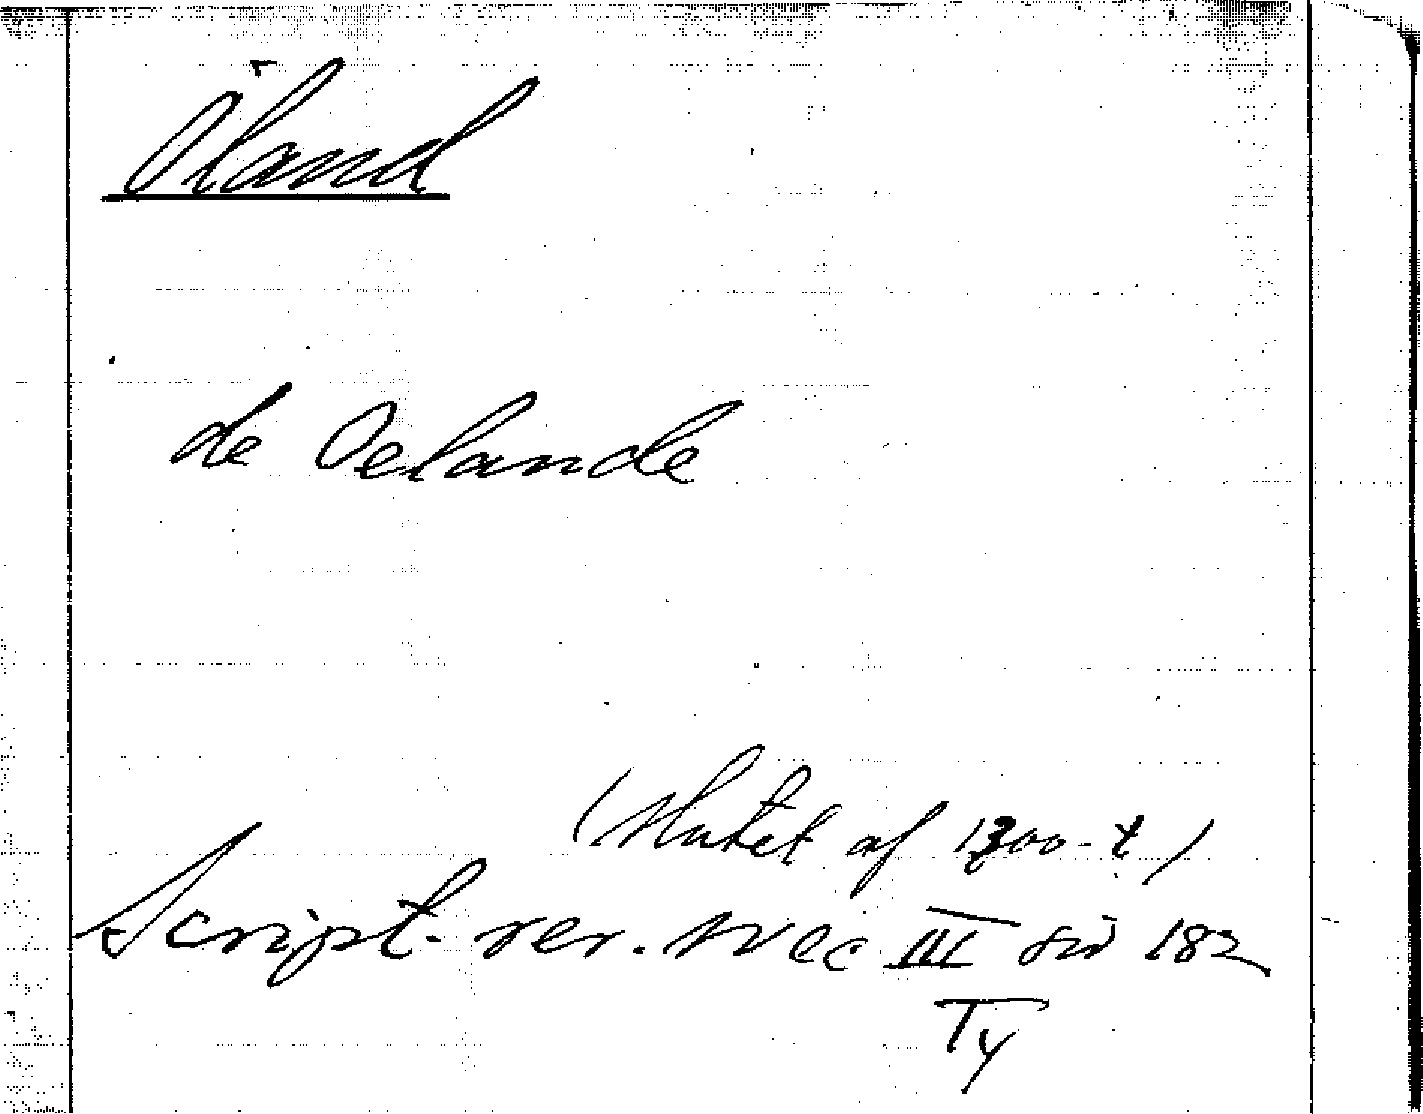 Öland
de Oelande
(slutet af 1300-t)
Script. rer. svec III sid 182
Ty